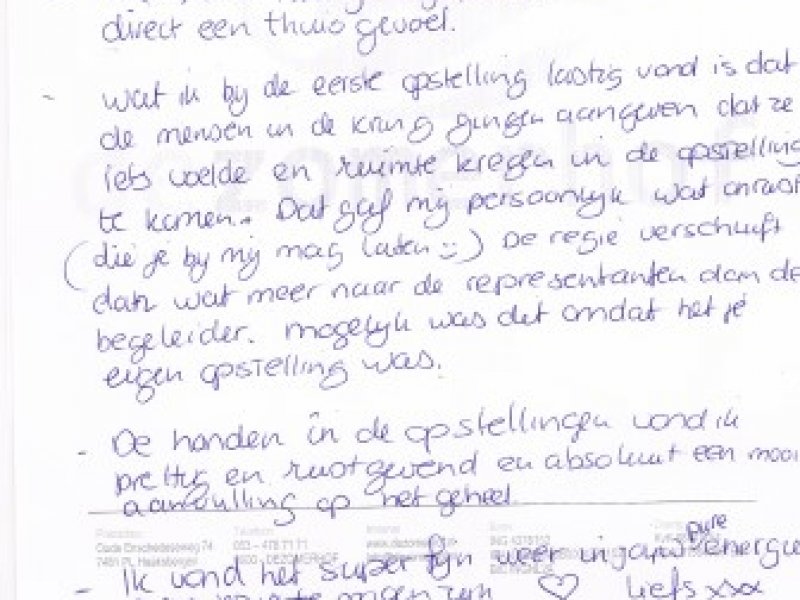 direct een thuis gevoel.
- wat ik bij de eerste opstelling lastig vond is dat
de mensen in de kring gingen aangeven dat ze
iets voelde en ruimte kregen in de opstelling
te komen. Dat gaf mij persoonlijk wat onrust
(die je bij mij mag laten :-) De regie verschuift
dan wat meer naar de representanten dan de
begeleider. mogelijk was dit omdat het je
eigen opstelling was.
- De honden in de opstellingen vond ik
prettig en rustgevend en absoluut een mooi
aanvulling op het geheel
Oude Enschedeseweg 74
7481 PL Haaksbergen
pure
- Ik vond het super fijn weer in jouw energie
te mogen zijn ♡ liefs xxx